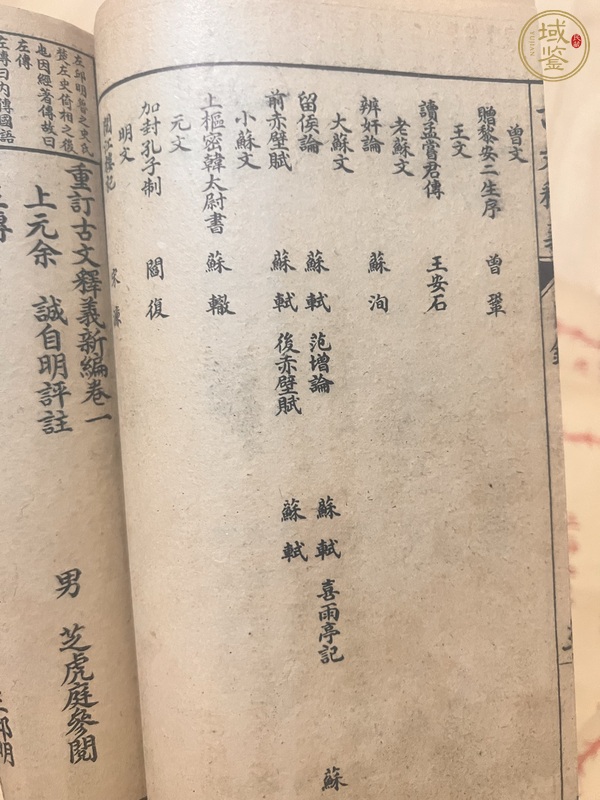 曾文
贈黎安二生序 曾鞏
王文
讀孟嘗君傳 王安石
老蘇文
辨奸論 蘇洵
大蘇文
留侯論 蘇軾 范增論 蘇軾 喜雨亭記 蘇
前赤壁賦 蘇軾 後赤壁賦 蘇軾
小蘇文
上樞密韓太尉書 蘇轍
元文
加封孔子制 閻復
明文
閱江樓記 宋濂
重訂古文釋義新編卷一
上元余 誠自明評註 男 芝虎庭參閱
左傳
左傳曰內傳國語
域鑒